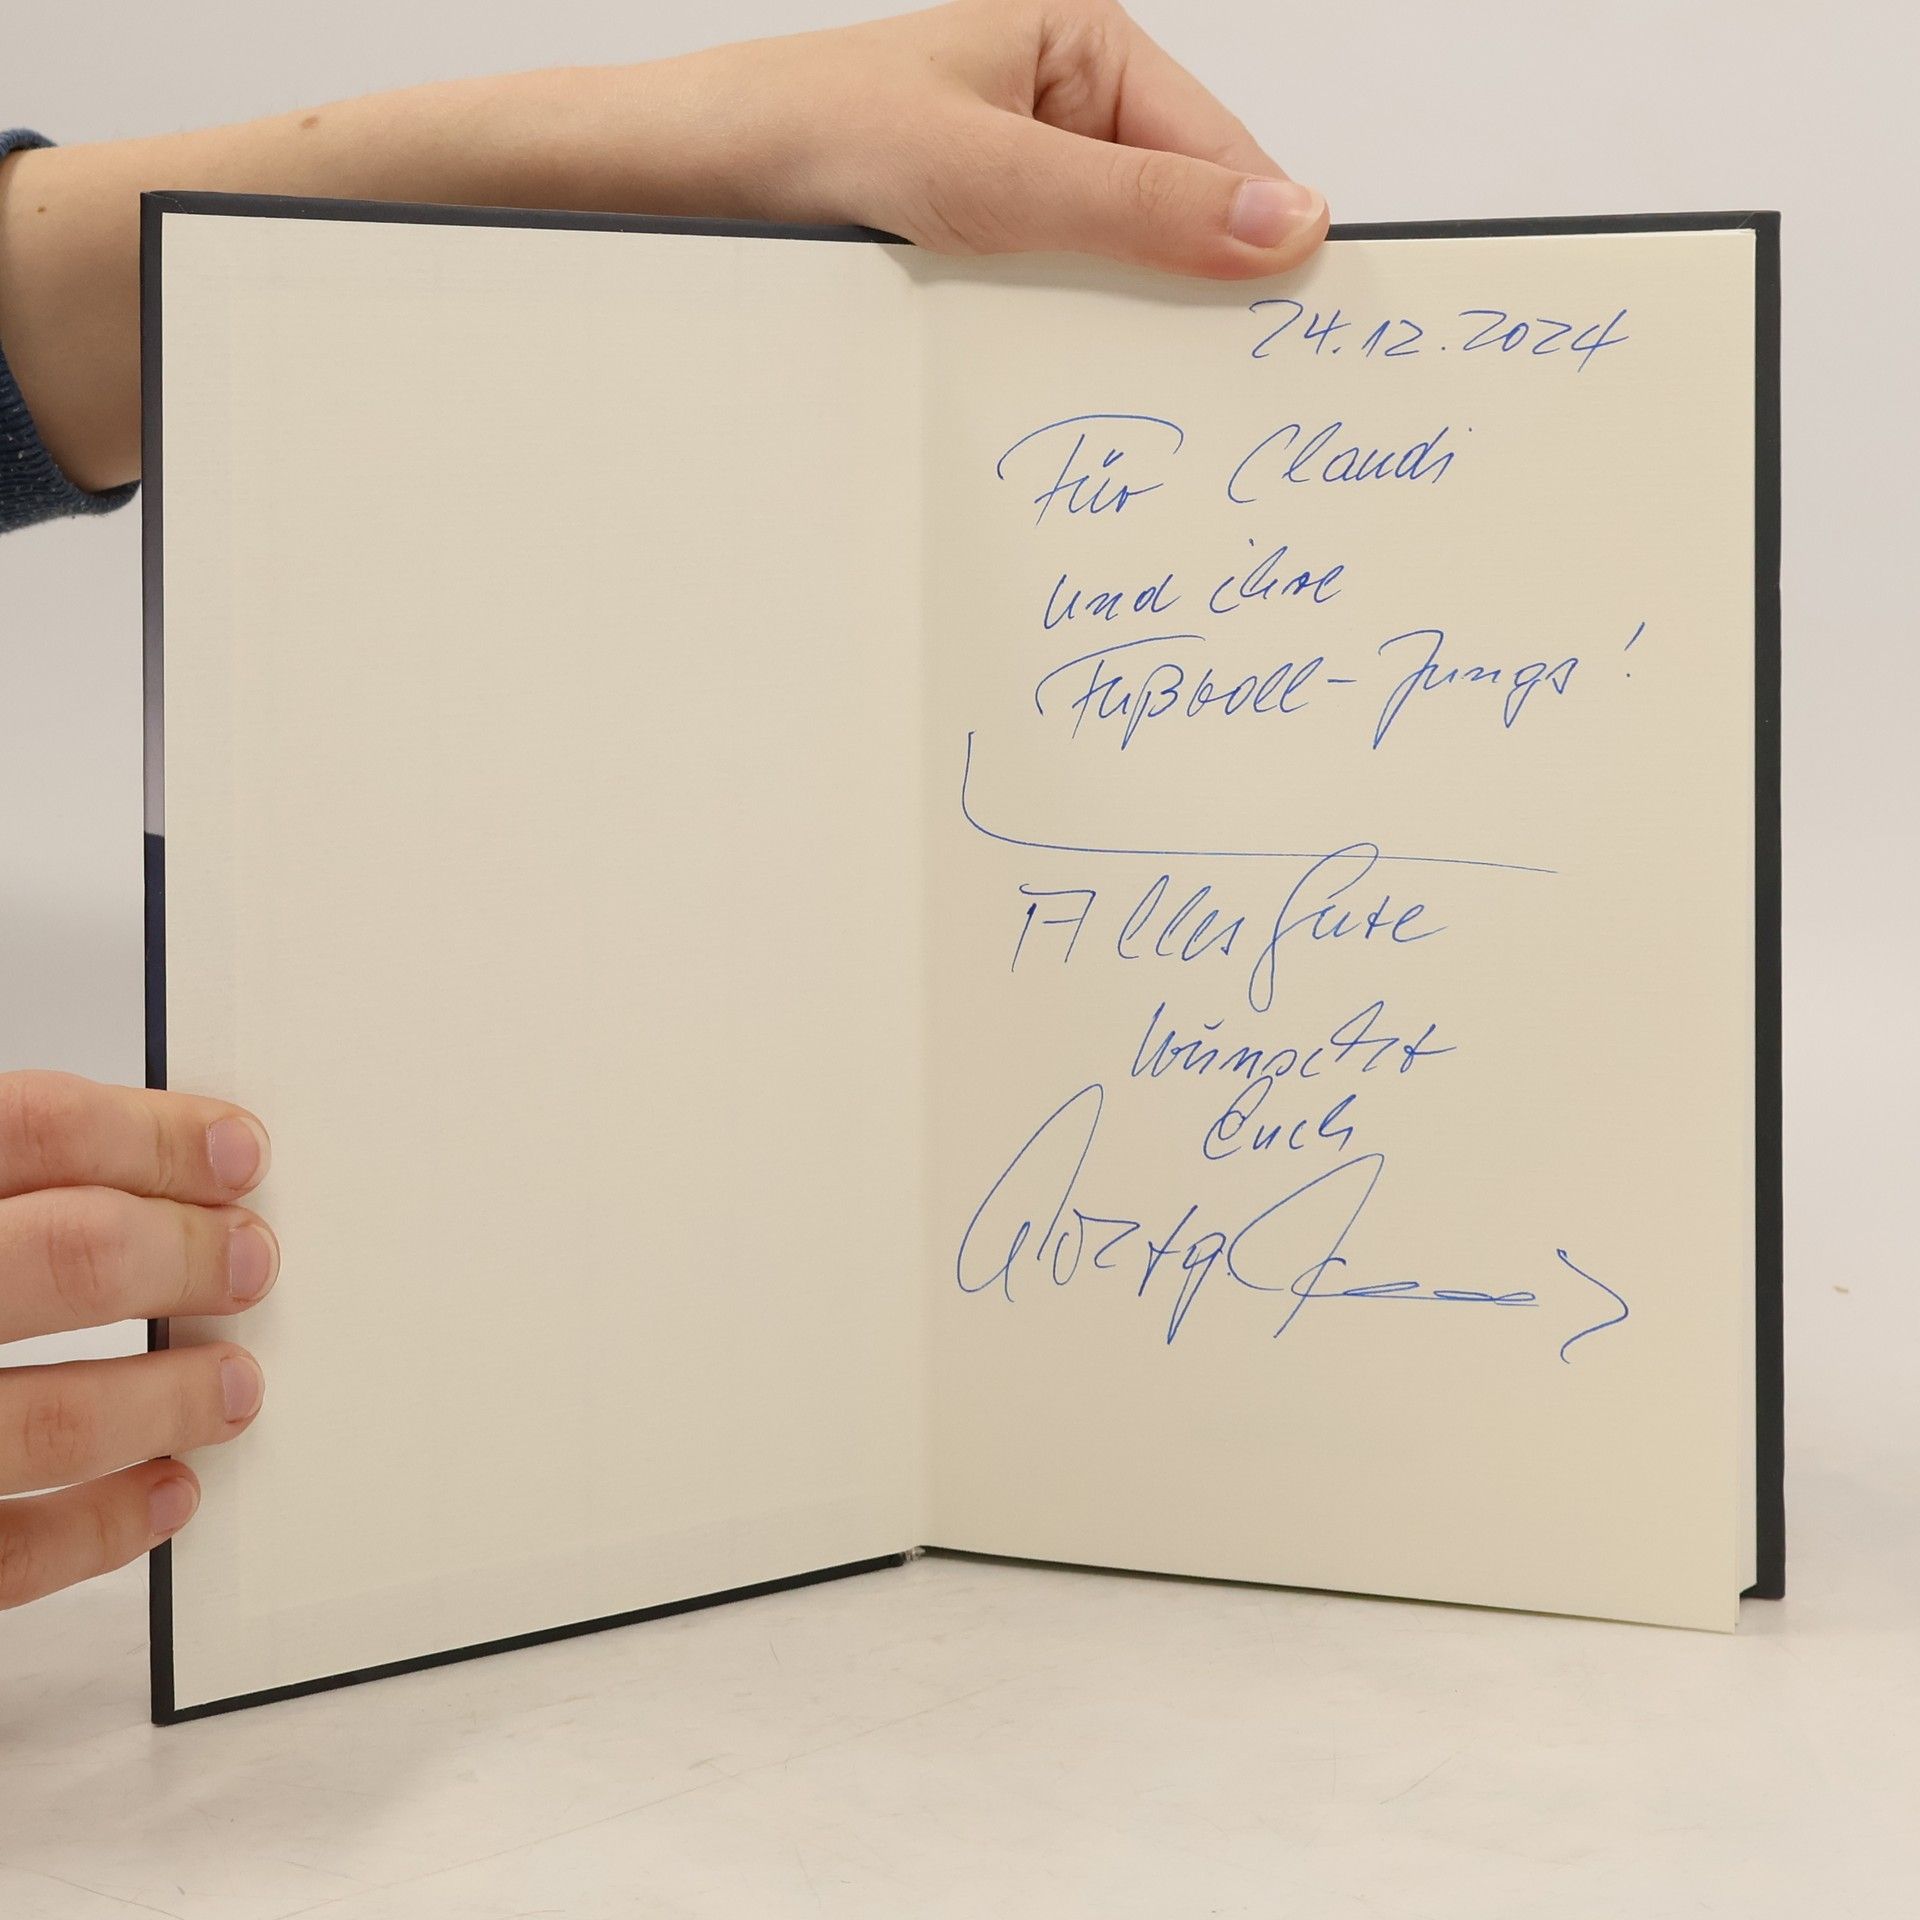 24.12.2024
Für Claudi
und ihre
Fußball-Jungs!
Alles Gute
wünscht
Euch